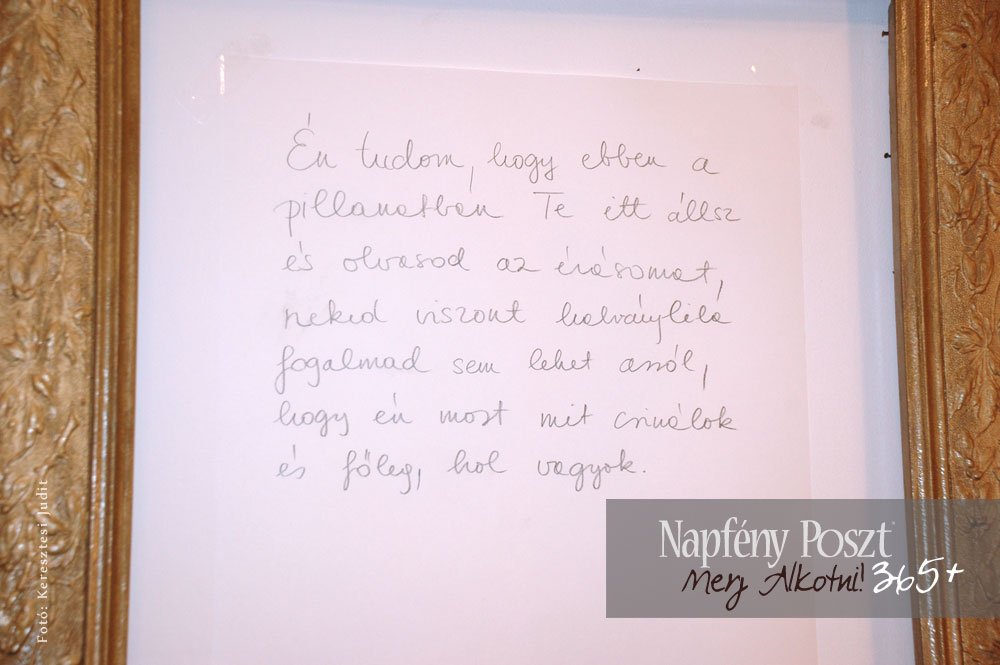 Én tudom, hogy ebben a
pillanatban Te itt állsz
és olvasod az írásomat,
neked viszont halványlila
fogalmad sem lehet arról,
hogy én most mit csinálok
és főleg, hol vagyok.
Napfény Poszt
Merj Alkotni! 365+
Fotó: Keresztesi Judit